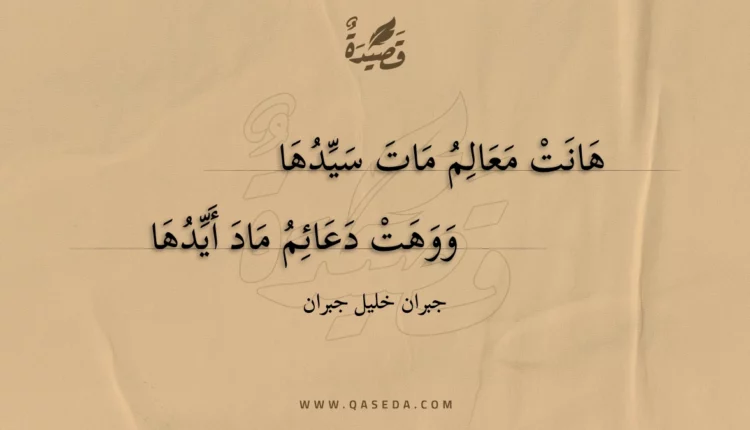 قَصِيْدَةٌ
هَانَتْ مَعَالِمُ مَاتَ سَيِّدُهَا
وَوَهَتْ دَعَائِمُ مَادَ أَيِّدُهَا
جبران خليل جبران
WWW.QASEDA.COM